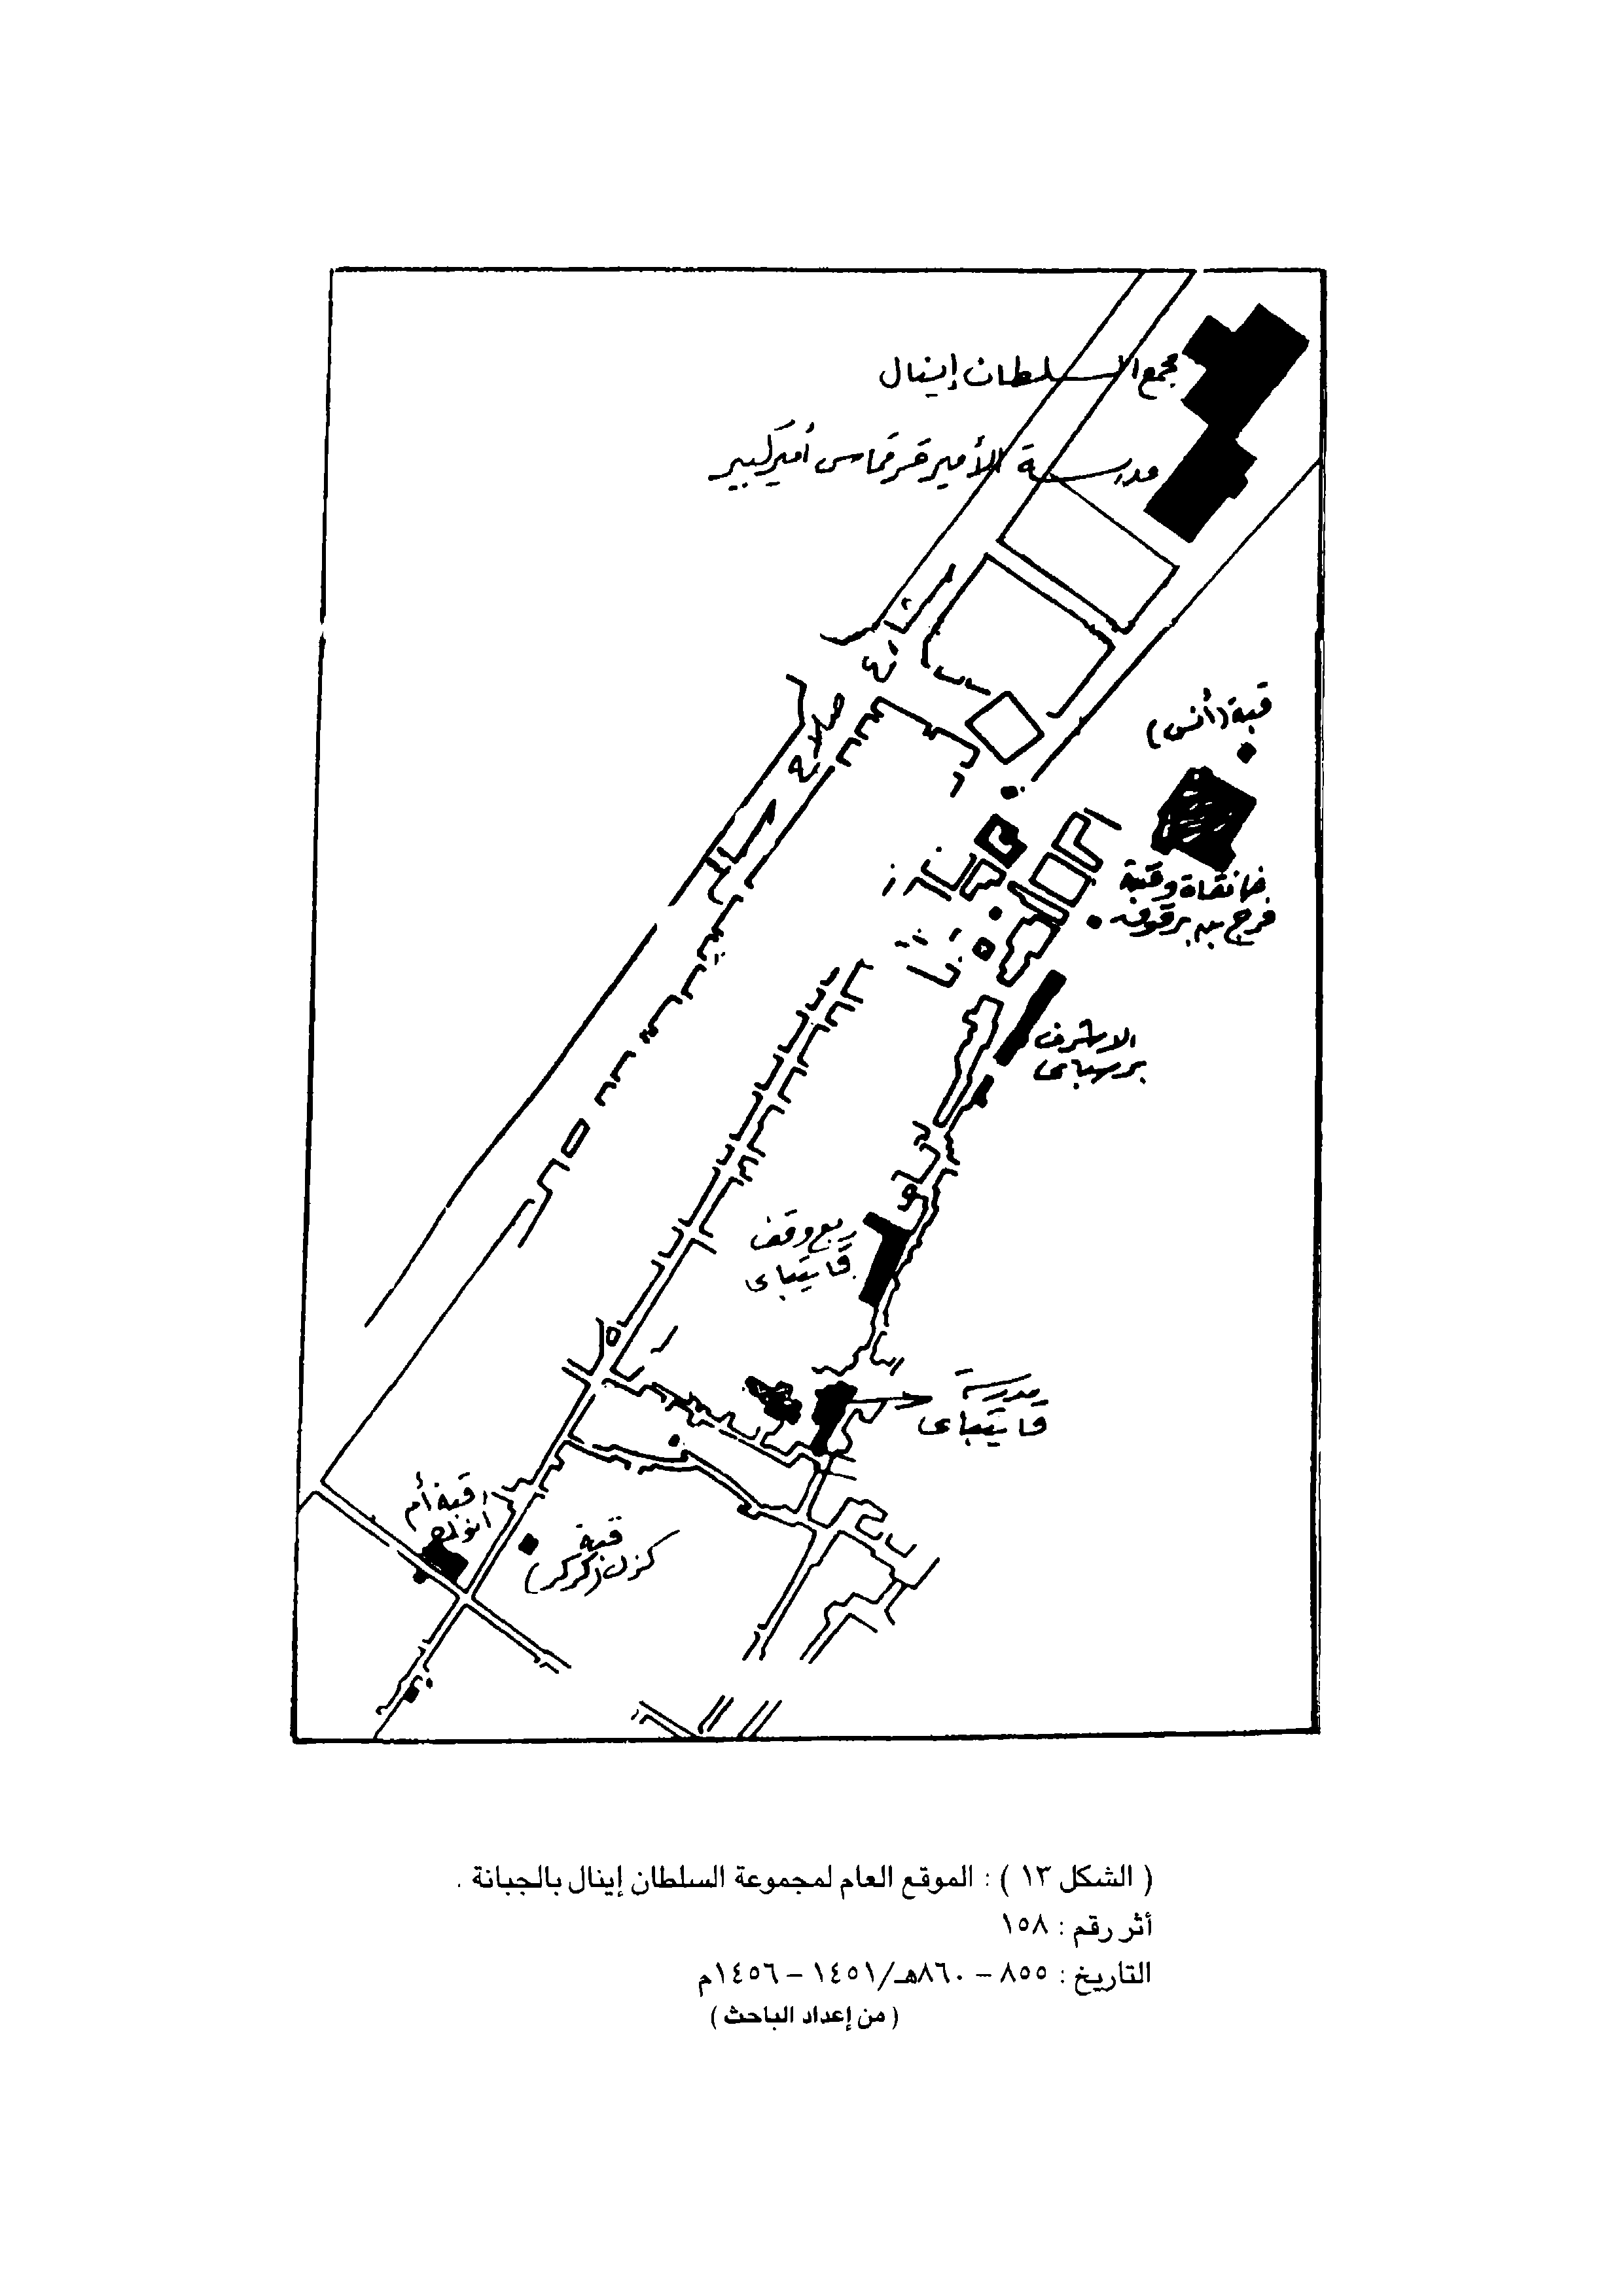 مجمع السلطان إينال
مدرسة الأمير قرقماس أمير كبير
قبة (أنس)
خانقاة وقبة
فرج بن برقوق
الاشرف
برسباى
ربع وقف
قايتباى
مدرسة
قايتباى
قبة أم
انوك
قبة
كزل (كركر)
شارع صلاح
( الشكل ١٣ ) : الموقع العام لمجموعة السلطان إينال بالجبانة .
أثر رقم : ١٥٨
التاريخ : ٨٥٥ – ٨٦٠هـ/١٤٥١ – ١٤٥٦م
( من إعداد الباحث )